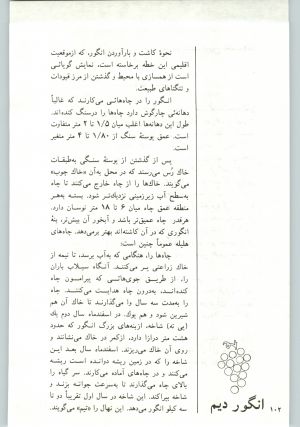 نحوهٔ کاشت و بارآوردن انگور، که ازموقعیت
اقلیمی این خطه برخاسته است، نمایش گویائی
است از همسازی با محیط و گذشتن از مرز قیودات
و تنگناهای طبیعت.
انگور را در چاه‌هائی می‌کارند که غالباً
دهانه‌ئی چارگوش دارد چاه‌ها را درسنگ کنده‌اند.
طول این دهانه‌ها اغلب میان ۱/۵ تا ۲ متر متفاوت
است. عمق پوستهٔ سنگ از ۱/۸۰ تا ۴ متر متغیر
است.
پس از گذشتن از پوستهٔ سنگی به‌طبقات
خاك رُس می‌رسند که در محل به‌آن «خاك چوب»
می‌گویند. خاك‌ها را از چاه خارج می‌کنند تا چاه
به‌سطح آب زیرزمینی نزدیك‌تر شود. بسته به‌هر
منطقه عمق چاه میان ۶ تا ۱۸ متر نوسان دارد.
هرقدر چاه عمیق‌تر باشد و آبخور آن بیش‌تر، بتهٔ
انگوری که در آن کاشته‌اند بهتر برمی‌دهد. چاه‌های
هلیله عموماً چنین است:
چاه‌ها را، هنگامی که به‌آب برسد، تا نیمه از
خاك زراعتی پر می‌کنند. آنگاه سیلاب باران
را، از طریق جوی‌هائی که پیرامون چاه
کنده‌اند، به‌درون چاه هدایت می‌کنند. چاه
را به‌مدت سه سال وا می‌گذارند تا خاك آن هم
شیرین شود و هم پوك. در اسفندماه سال دوم یك
(پی ته) شاخه، ازبته‌های بزرگ انگور که حدود
هشت متر درازا دارد، ازکمر در خاك می‌نشانند و
روی آن خاك می‌ریزند. اسفندماه سال بعد این
شاخه را که در زمین ریشه دوانده است ریشه
می‌کنند و در چاه‌های آماده می‌کارند. سر گیاه را
بالای چاه می‌گذارند تا به‌سرعت جوانه بزند و
شاخه بپراکند. این شاخه در سال اول تقریباً دو تا
سه کیلو انگور می‌دهد. این نهال را «تیم» می‌گویند.
۱۰۲ انگور دیم